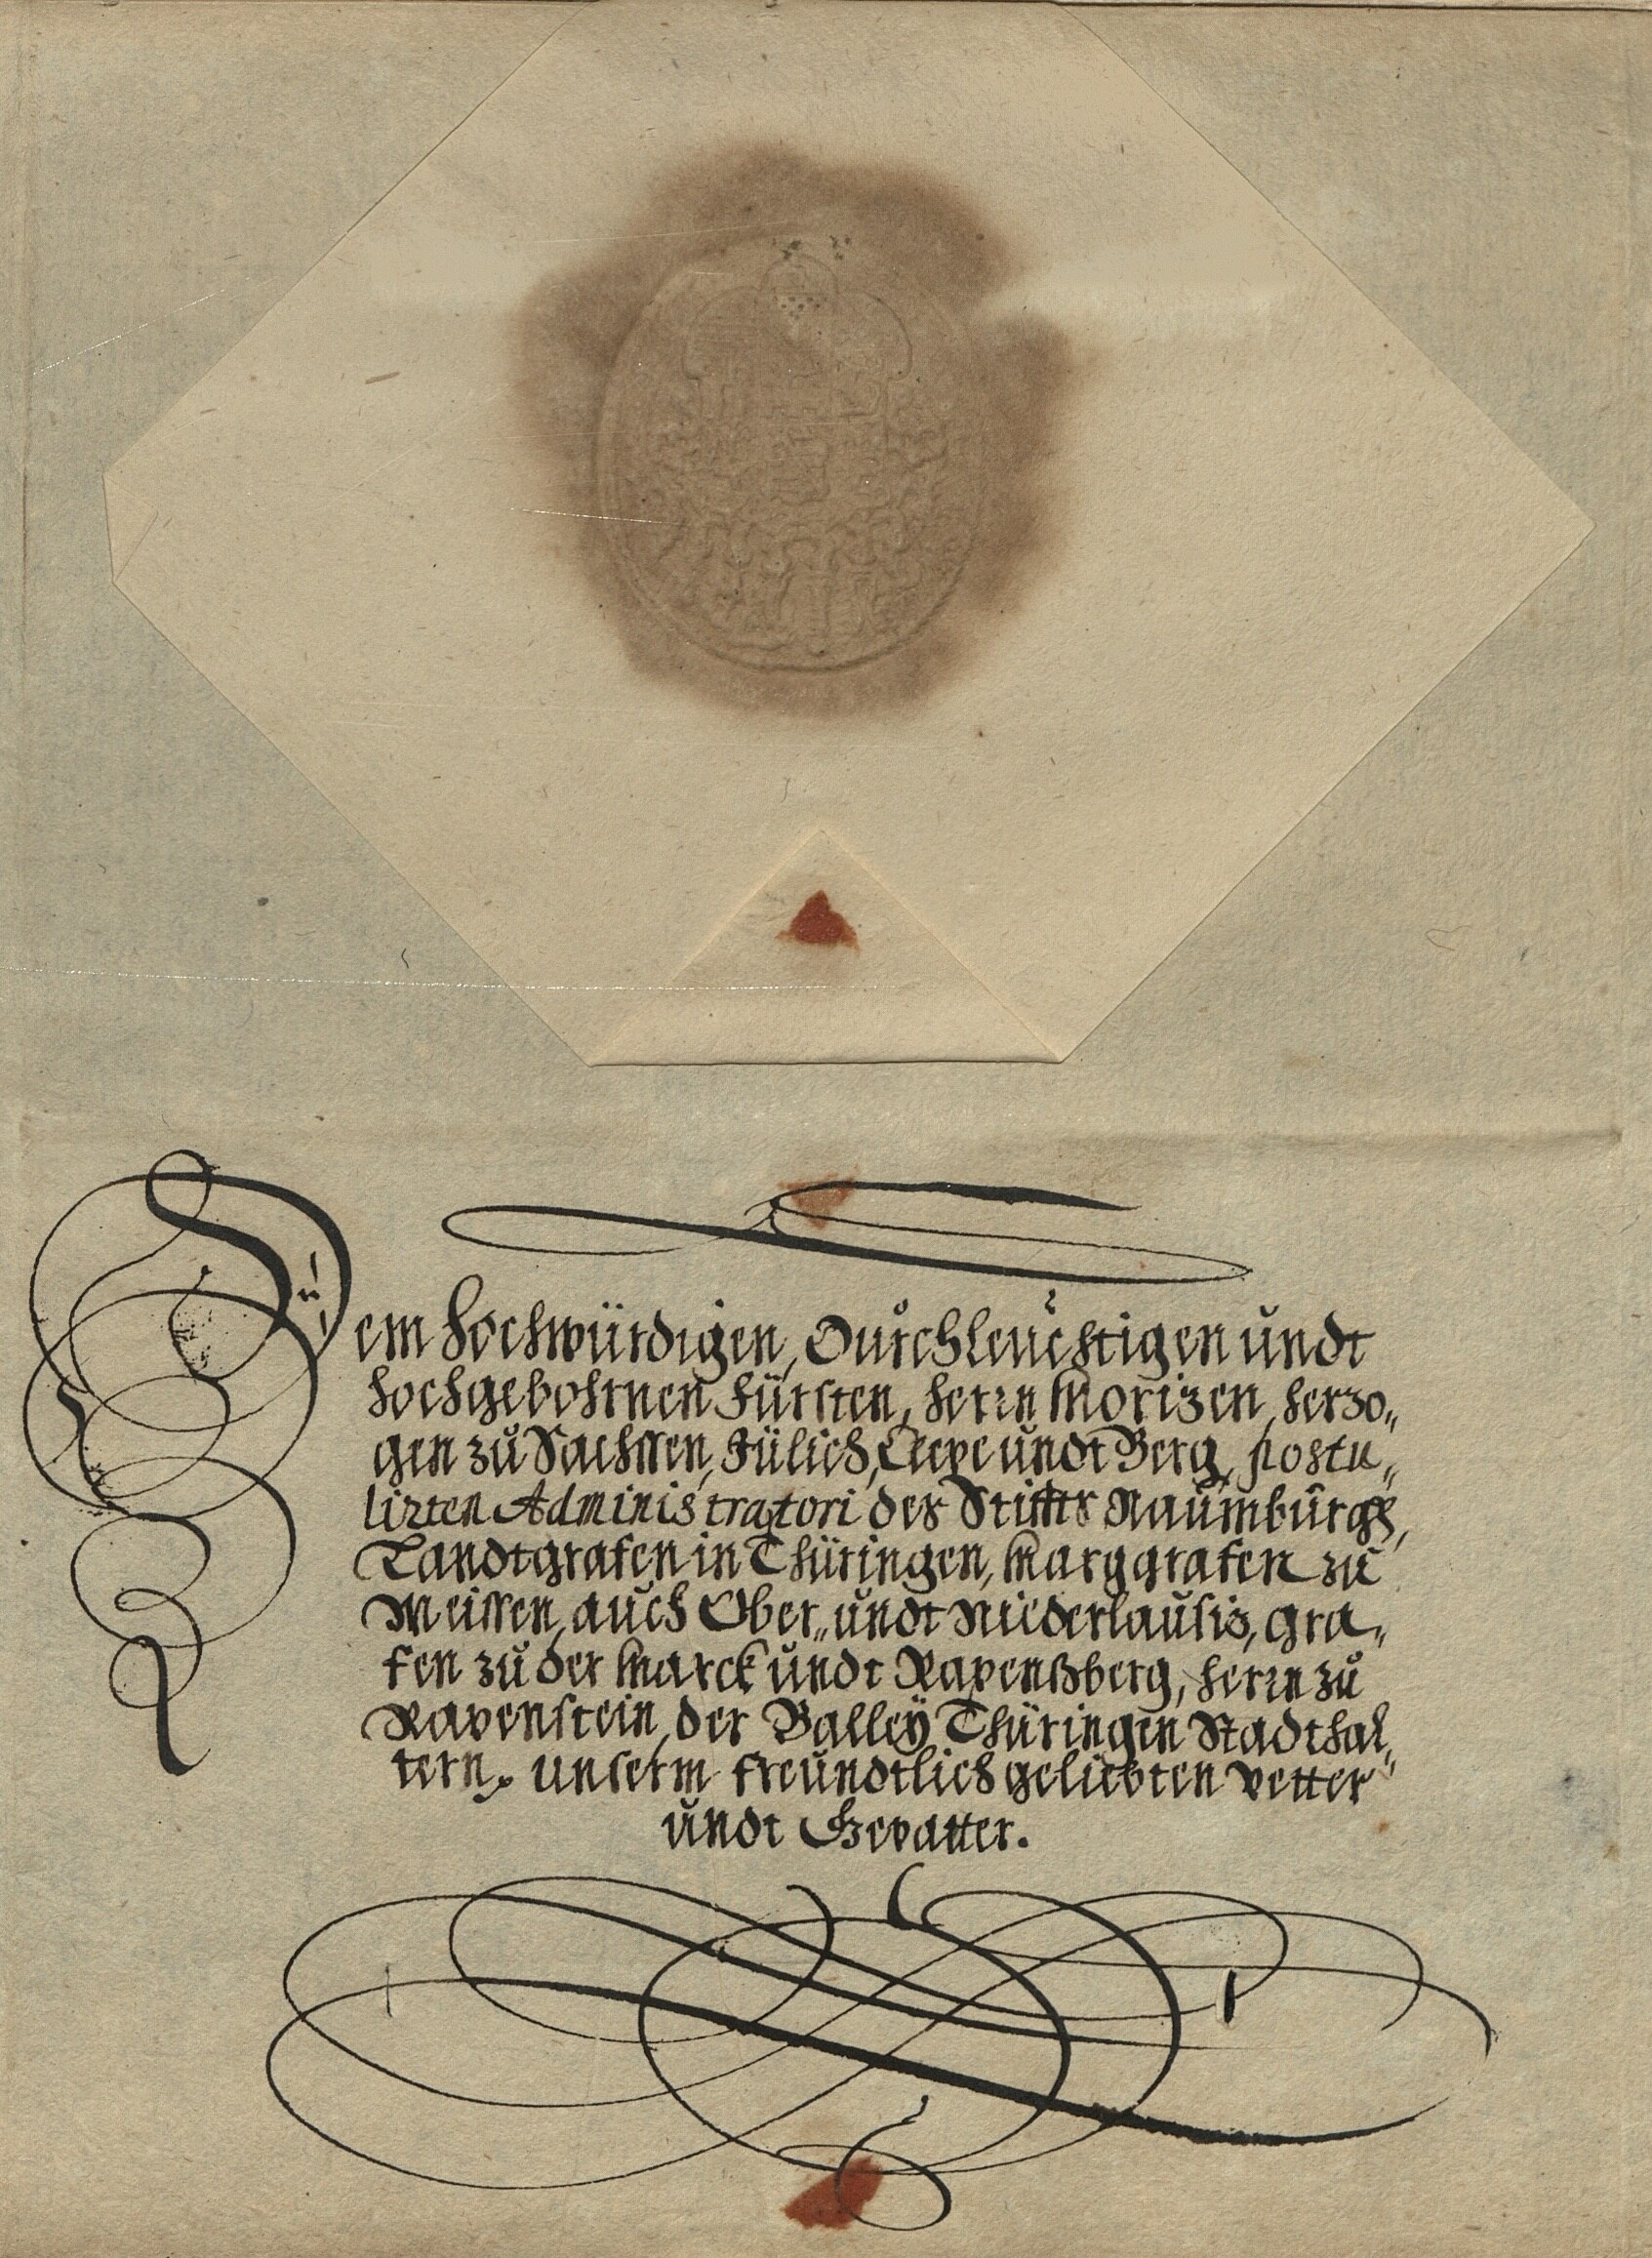 Dem Hochwürdigen, Durchleuchtigen undt
Hochgebohrnen Fürsten, Herrn Morizen, Herzo„
gen zu Sachssen, Jülich, Cleve undt Berg, postu„
lirten Administratori des Stiffts Naumburgk,
Landtgrafen in Thüringen, Marggrafen zu
Meissen, auch Ober„ undt Niederlausiz, Gra„
fen zu der Marck undt Ravenßberg, Herrn zu
Ravenstein, der Balley Thüringen Stadthal„
tern. Unserm freundtlich geliebten Vetter
undt Gevatter.